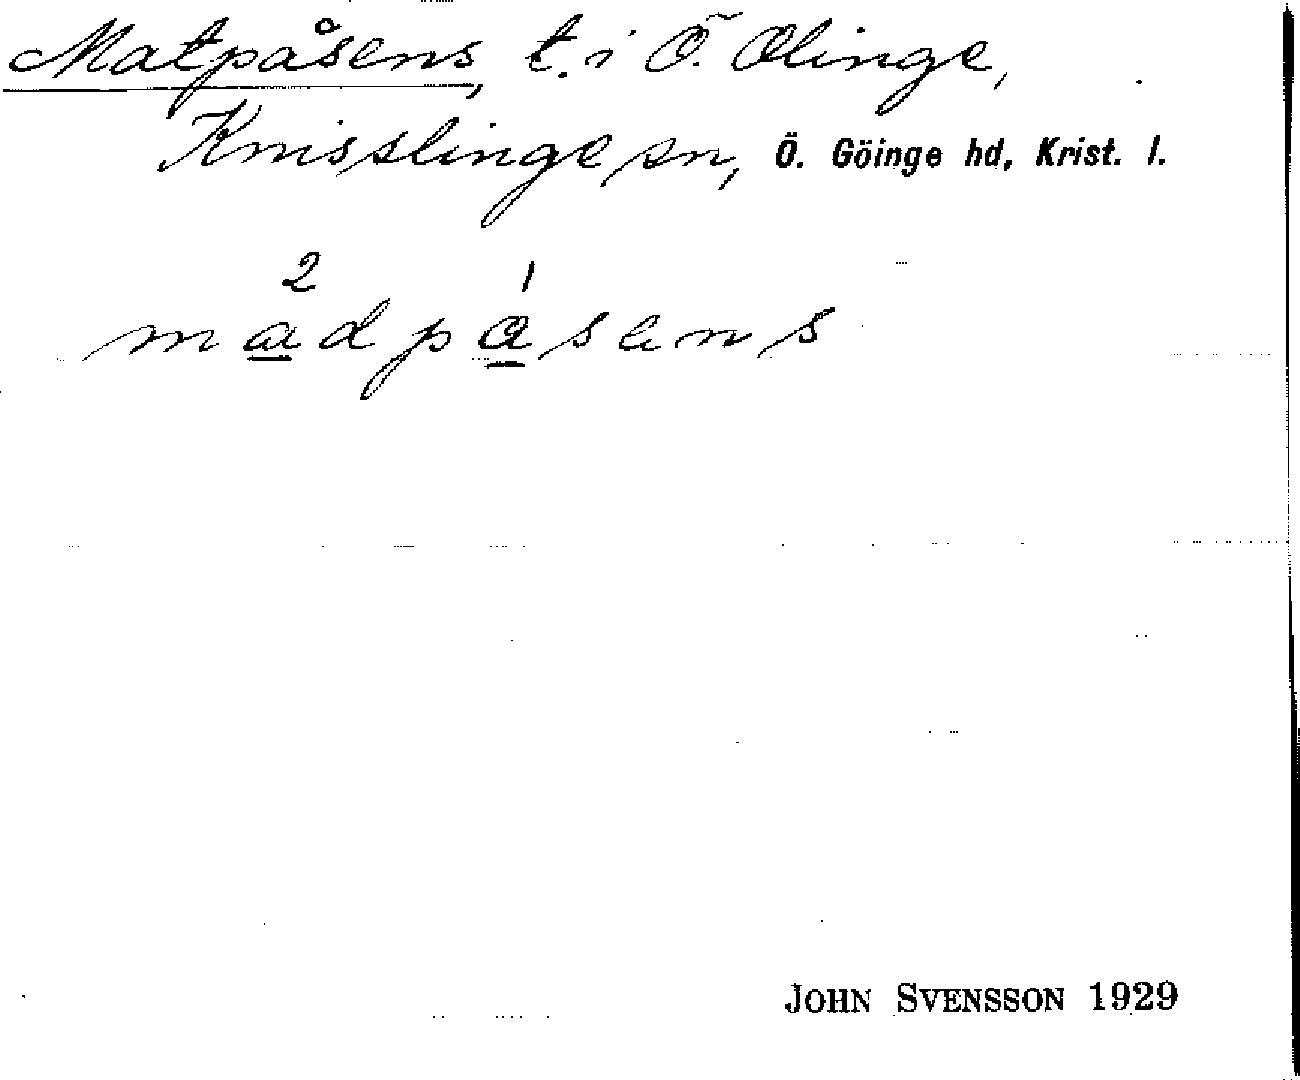 Matpåsens, t. i Ö. Olinge,
Knisslinge sn, Ö. Göinge hd, Krist. l.
2 1
madpåsens
JOHN SVENSSON 1929